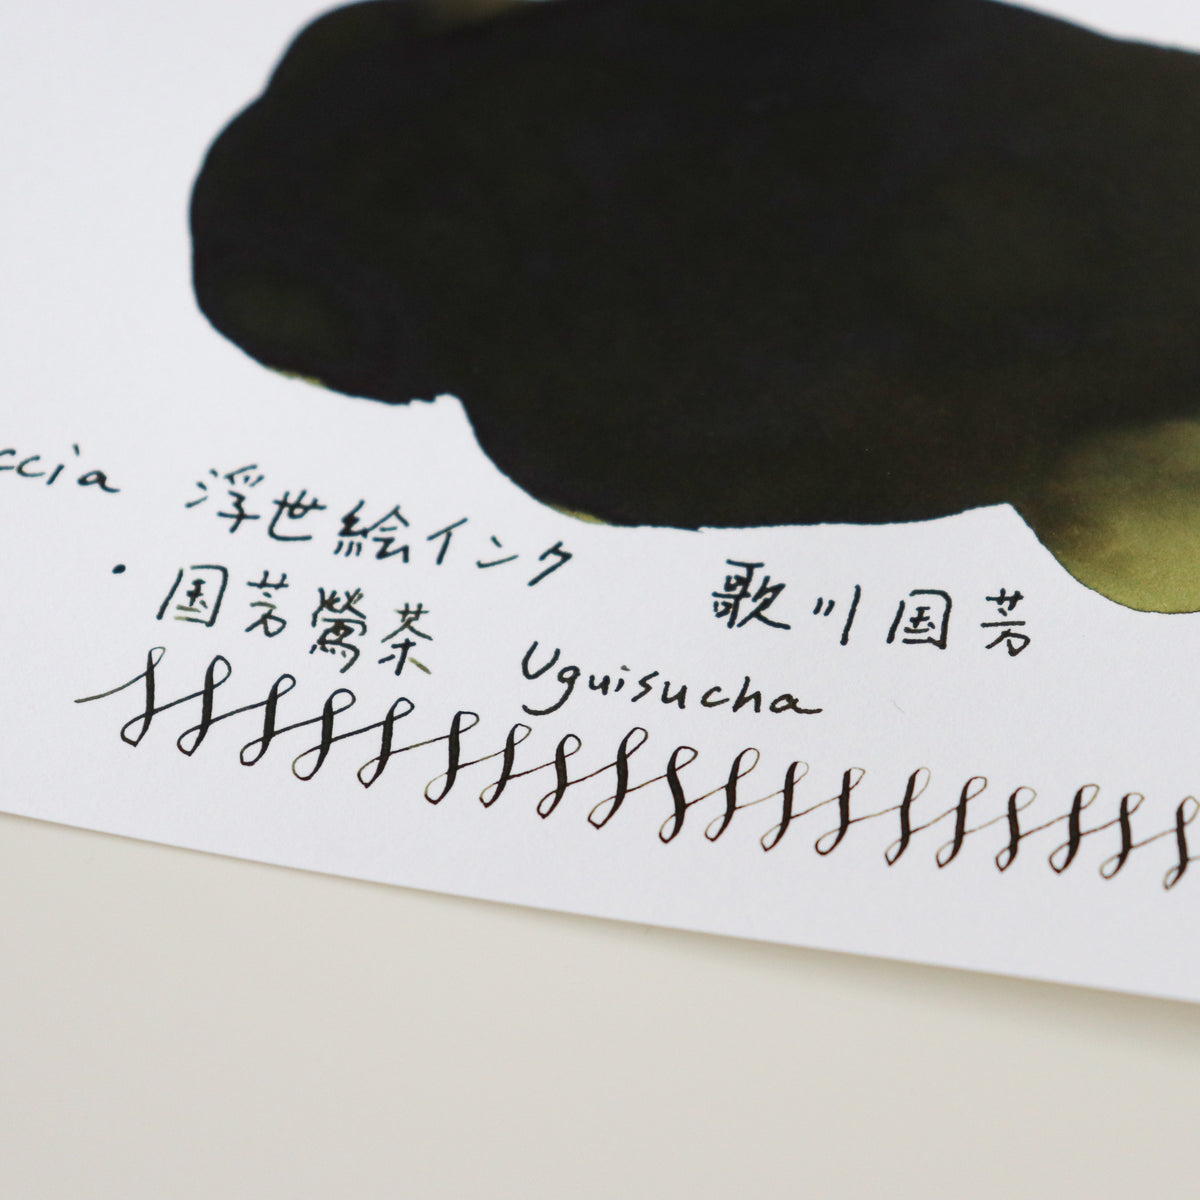 ccia 浮世絵インク 歌川国芳
・国芳鶯茶 Uguisucha